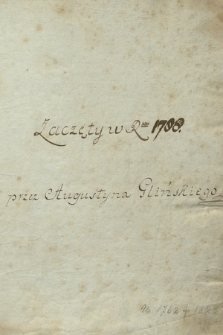 Zaczęty w Rm 1788.
przez Augustyna Glińskiego